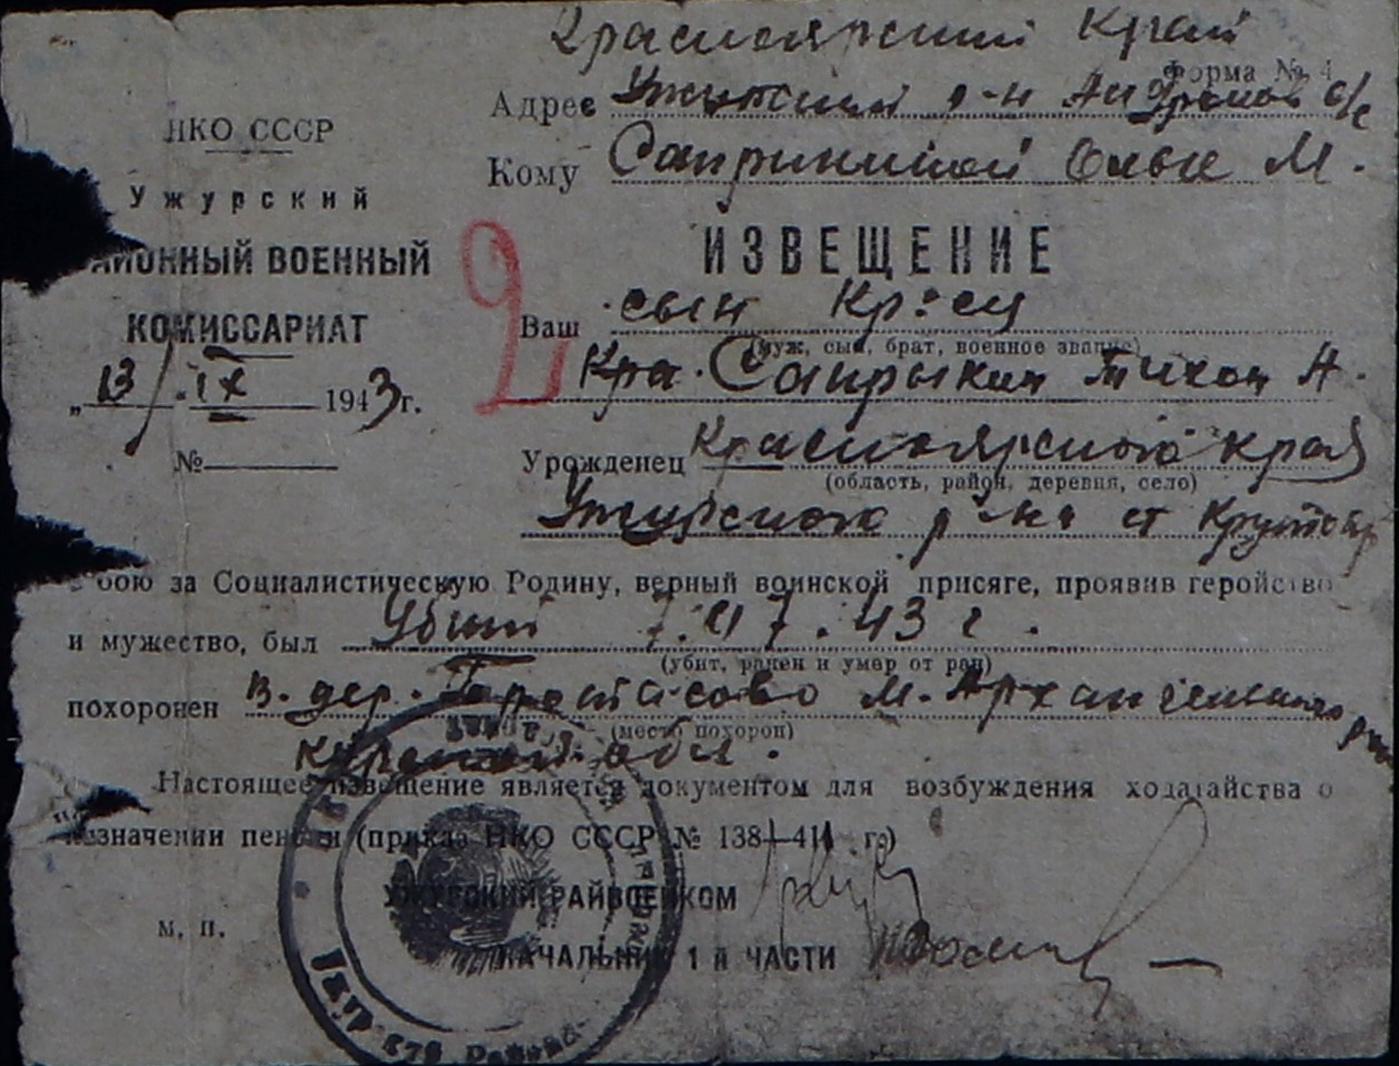 Красноярский край
Форма № 4
Адрес Ужурский р-н с/с
Кому Сапрыкиной Ольге М.
НКО СССР
Ужурский
РАЙОННЫЙ ВОЕННЫЙ
КОМИССАРИАТ
„13/ IX 1943 г.
№
2
ИЗВЕЩЕНИЕ
Ваш сын кр-ец
(муж, сын, брат, военное звание)
Кра. Сапрыкин Тихон А.
Урожденец Красноярского края
(область, район, деревня, село)
Ужурского р-на ст
в бою за Социалистическую Родину, верный воинской присяге, проявив геройство
и мужество, был Убит 7.07.43 г.
(убит, ранен и умер от ран)
похоронен в. дер. Протасово М. Архангельского
(место похорон)
Курской обл.
Настоящее извещение является документом для возбуждения ходатайства о
назначении пенсии (приказ НКО СССР № 138—41 г.)
УЖУРСКИЙ РАЙВОЕНКОМ
М. П.
НАЧАЛЬНИК 1 й ЧАСТИ